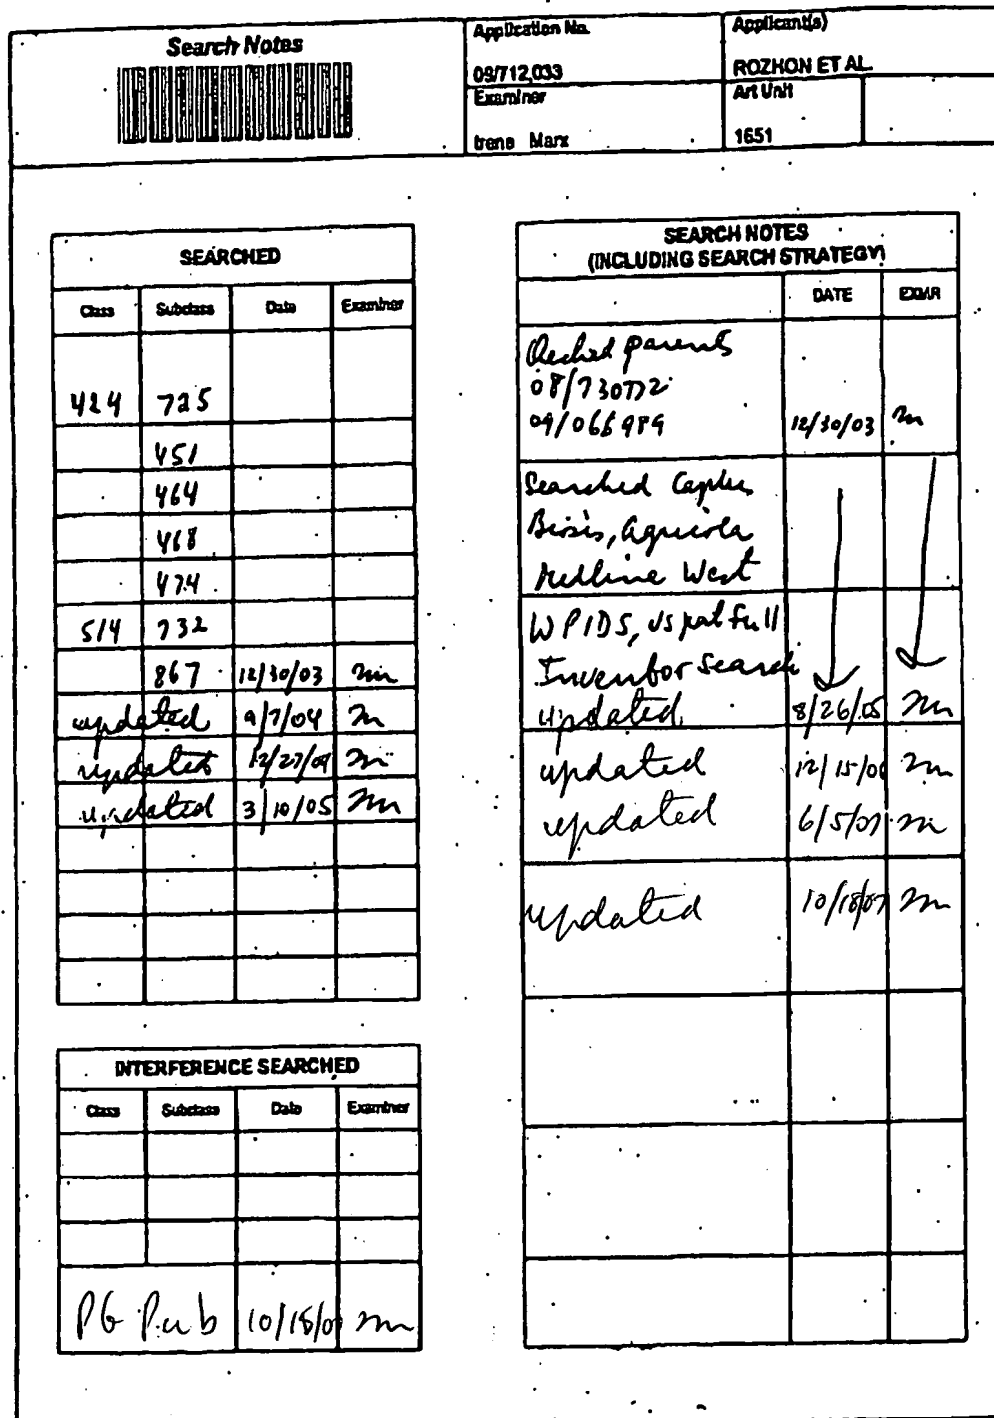 Search Notes
Application No.
09/712,033
Applicant(s)
ROZHON ET AL.
Examiner
Irene Marx
Art Unit
1651
SEARCHED
Class Subclass Date Examiner
424 725
451
464
468
474
514 732
867 12/30/03 m
updated 9/7/04 m
updated 12/27/04 m
updated 3/10/05 m
INTERFERENCE SEARCHED
Class Subclass Date Examiner
PG Pub 10/18/0 m
SEARCH NOTES
(INCLUDING SEARCH STRATEGY)
DATE EXMR
Checked parents
08/730772
09/066989 12/30/03 m
Searched Caplus
Biosis, Agricola
Medline West
WPIDS, uspatfull
Inventor search
updated 8/26/05 m
updated 12/15/06 m
updated 6/5/07 m
updated 10/18/07 m